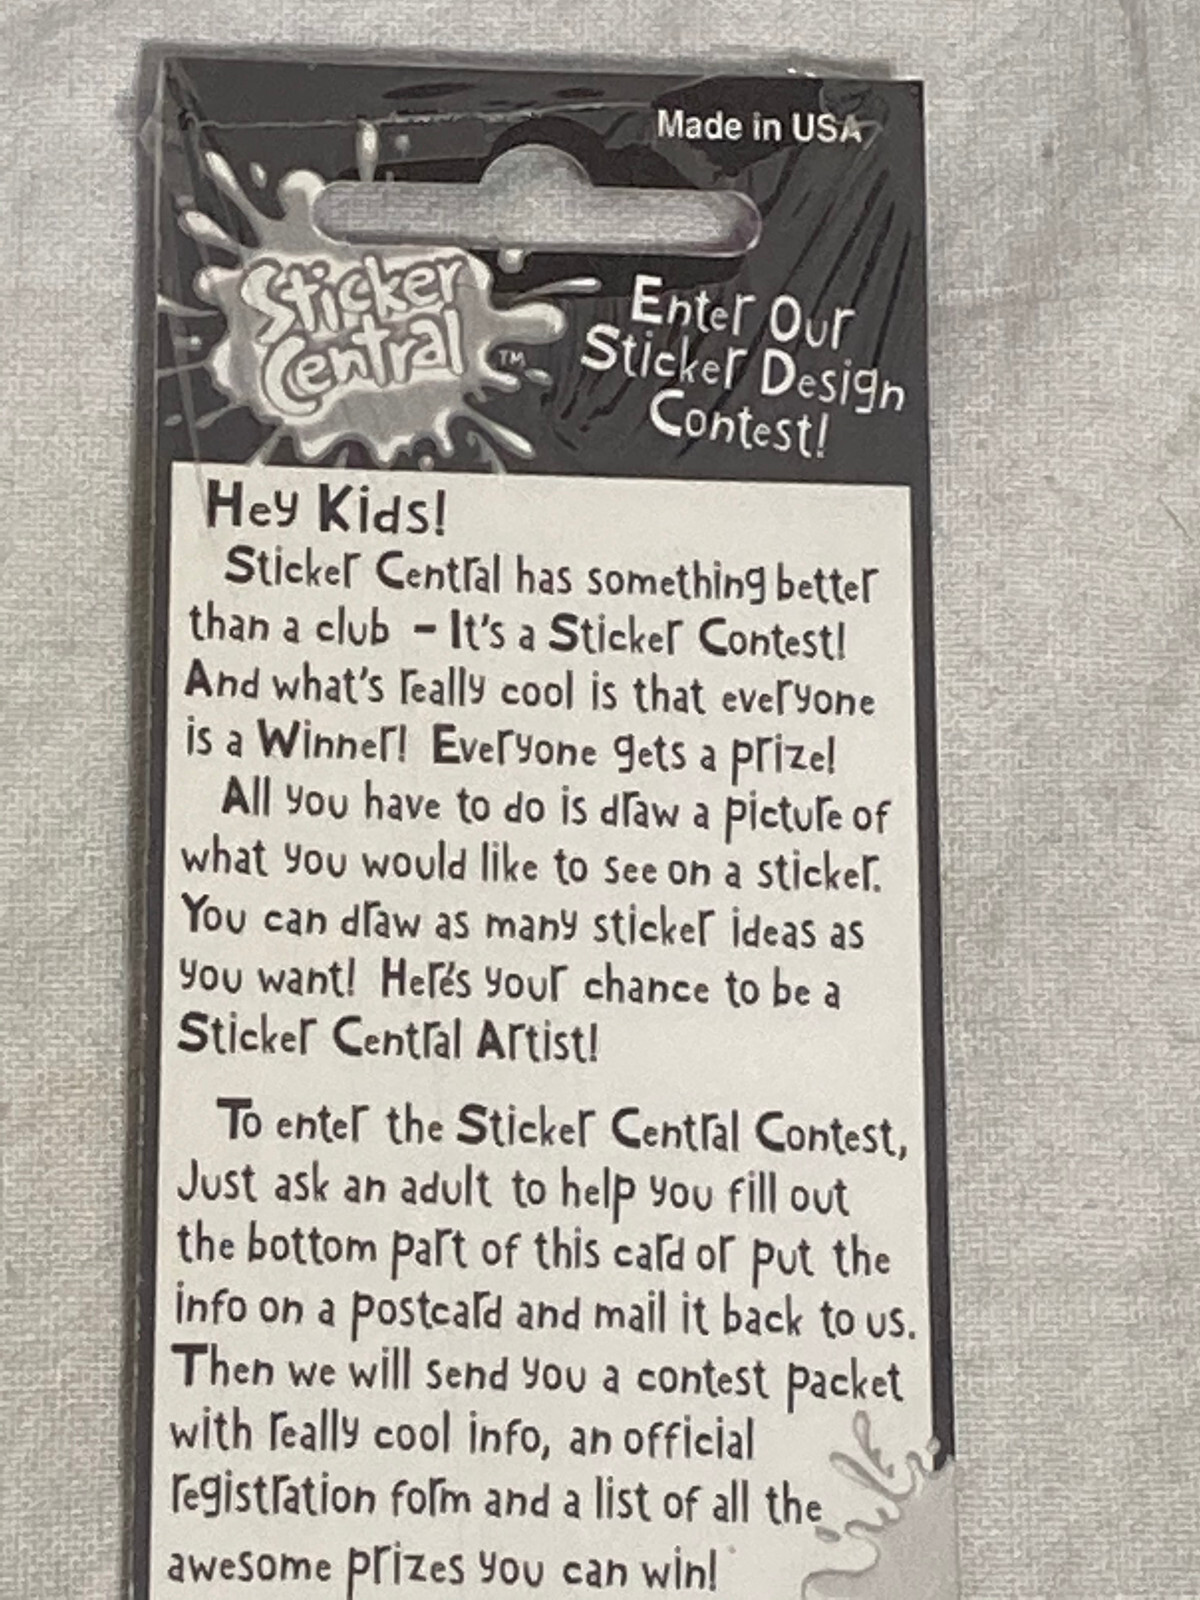 Made in USA
Sticker
Central
TM
Enter Our
Sticker Design
Contest!
Hey Kids!
Sticker Central has something better
than a club - It's a Sticker Contest!
And what's really cool is that everyone
is a Winner! Everyone gets a prize!
All you have to do is draw a picture of
what you would like to see on a sticker.
You can draw as many sticker ideas as
you want! Here's your chance to be a
Sticker Central Artist!
To enter the Sticker Central Contest,
Just ask an adult to help you fill out
the bottom part of this card or put the
info on a postcard and mail it back to us.
Then we will send you a contest packet
with really cool info, an official
registration form and a list of all the
awesome prizes you can win!